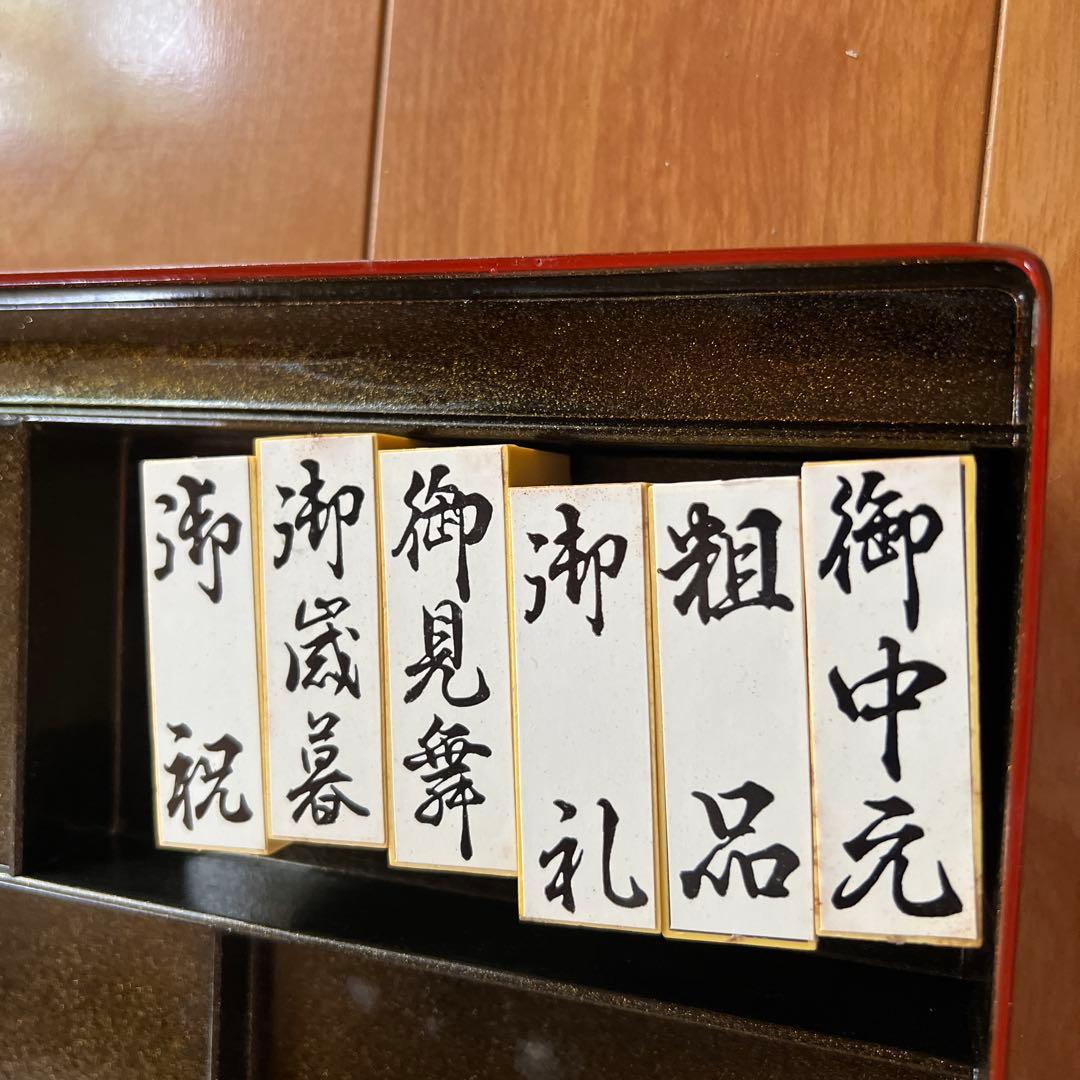 御祝
御歳暮
御見舞
御礼
粗品
御中元